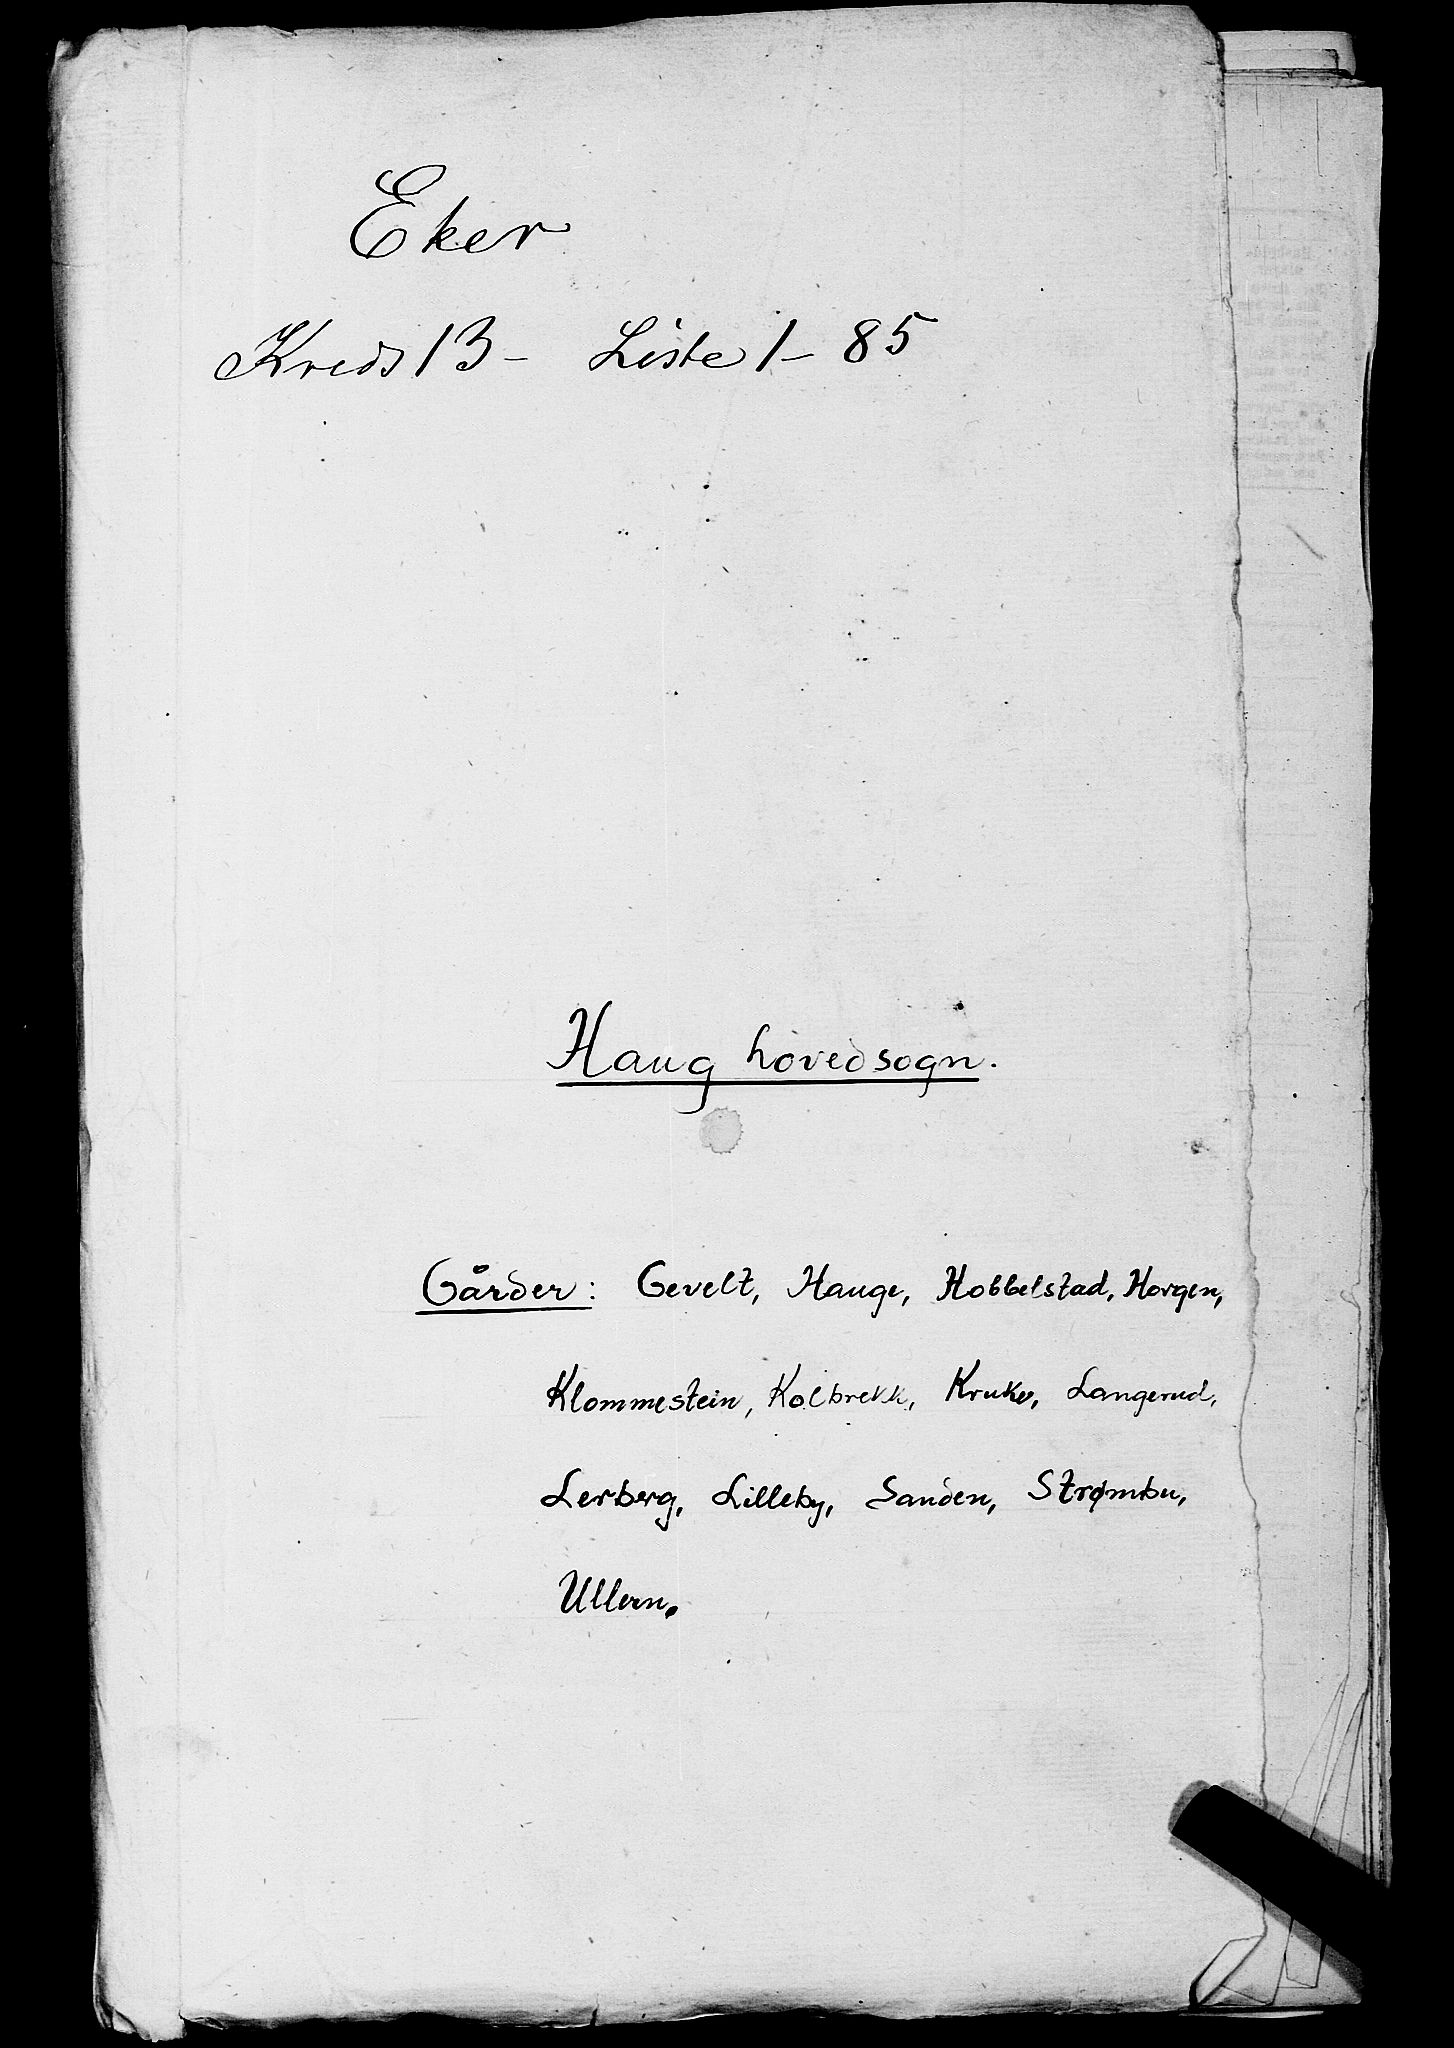 Eker
Kreds 13 - Liste 1 - 85
Haug hovedsogn.
Gårder: Gevelt, Hauge, Hobbelstad, Horgen,
Klommestein, Kolbrekk, Kruke, Langerud,
Lerberg, Lilleby, Sanden, Strømbu,
Ullern.